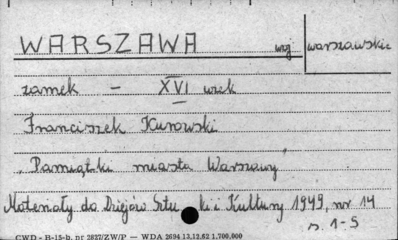 WARSZAWA woj warszawskie
zamek - XVI wiek
Franciszek Kurowski
"Pamiątki miasta Warszawy"
Materiały do Dziejów Sztu ki i Kultury 1949, nr 14
s. 1-5
CWD - B-15-b, nr 2827/ZW/P — WDA 2694 13.12.62 1.700.000